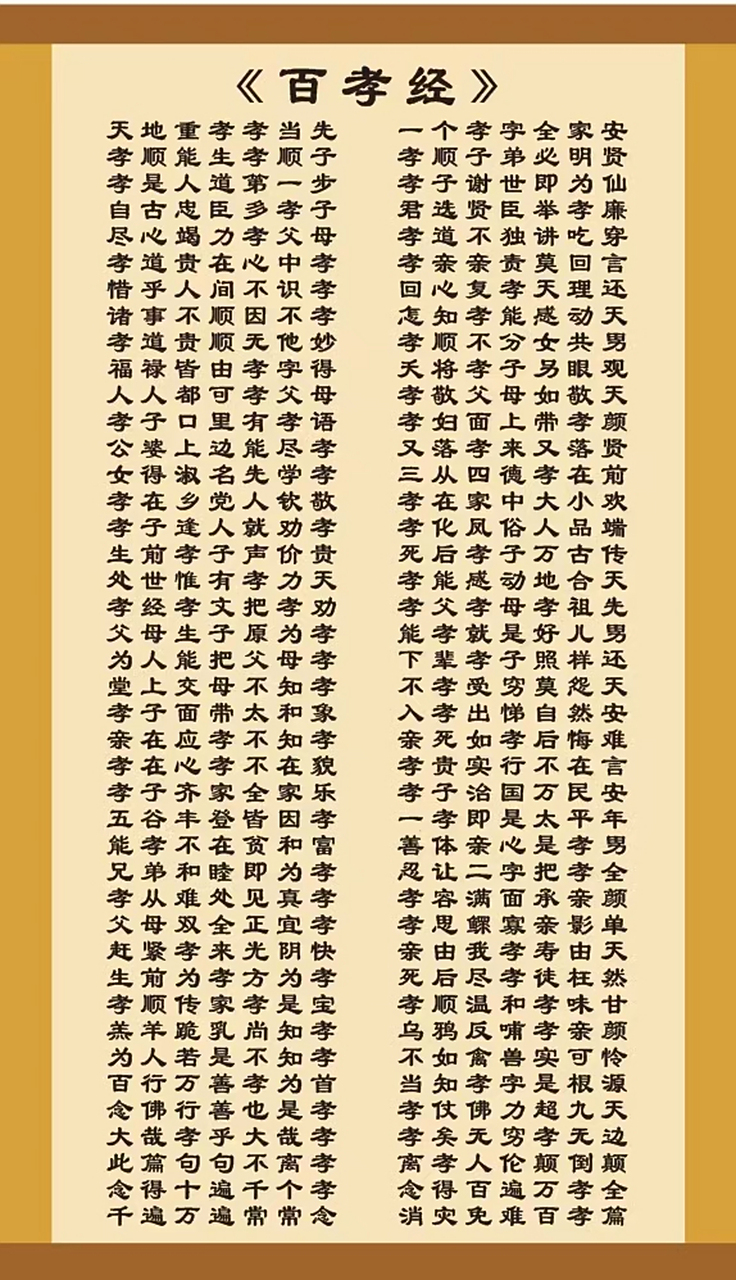 《百孝经》
天地重孝孝当先 一个孝字全家安
孝顺能生孝顺子 孝顺子弟必明贤
孝是人道第一步 孝子谢世即为仙
自古忠臣多孝子 君选贤臣举孝廉
尽心竭力孝父母 孝道不独讲吃穿
孝道贵在心中孝 孝亲亲责莫回言
惜乎人间不识孝 回心复孝天理还
诸事不顺因不孝 怎知孝能感动天
孝道贵顺无他妙 孝顺不分女共男
福禄皆由孝字得 天将孝子另眼观
人人都可孝父母 孝敬父母如敬天
孝子口里有孝语 孝妇面上带孝颜
公婆上边能尽孝 又落孝来又落贤
女得淑名先学孝 三从四德孝在前
孝在乡党人钦敬 孝在家中大小欢
孝子逢人就劝孝 孝化风俗人品端
生前孝子声价贵 死后孝子万古传
处世惟有孝力大 孝能感动地合天
孝经孝文把孝劝 孝父孝母孝祖先
父母生子原为孝 能孝就是好儿男
为人能把父母孝 下辈孝子照样还
堂上父母不知孝 不孝受穷莫怨天
孝子面带太和象 入孝出悌自然安
亲在应孝不知孝 亲死如孝后悔难
孝在心孝不在貌 孝贵实行不在言
孝子齐家全家乐 孝子治国万民安
五谷丰登皆因孝 一孝即是太平年
能孝不在贫和富 善体亲心是孝男
兄弟和睦即为孝 忍让二字把孝全
孝从难处见真孝 孝容满面承亲颜
父母双全正宜孝 孝思鳏寡亲影单
赶紧孝来光阴快 亲由我孝寿由天
生前为孝方为孝 死后尽孝徒枉然
孝顺传家孝是宝 孝顺温和孝味甘
羔羊跪乳尚知孝 乌鸦反哺孝亲颜
为人若是不知孝 不如禽兽实可怜
百行万善孝为首 当知孝字是根源
念佛行善也是孝 孝仗佛力超九天
大哉孝乎大哉孝 孝矣无穷孝无边
此篇句句不离孝 离孝人伦颠倒颠
念得十遍千个孝 念得百遍万孝全
千遍万遍常常念 消灾免难百孝篇